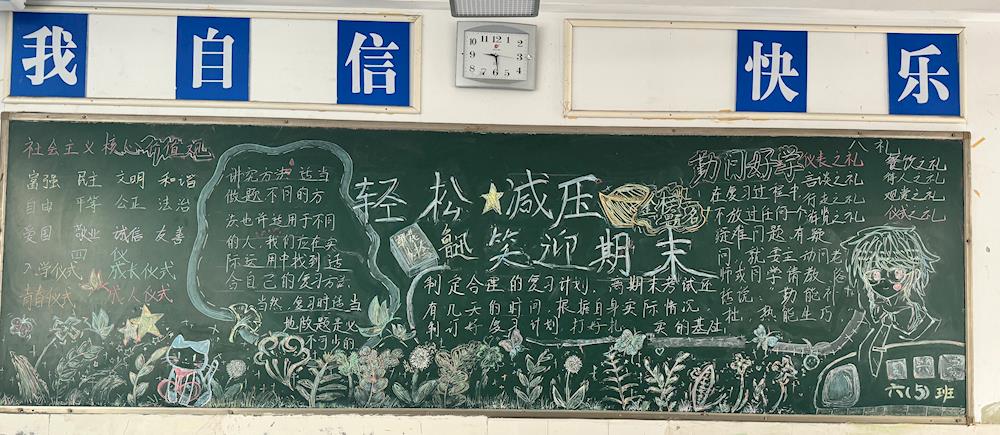 我自信
快乐
社会主义核心价值观
富强 民主 文明 和谐
自由 平等 公正 法治
爱国 敬业 诚信 友善
四仪
入学仪式 成长仪式
青春仪式 成人仪式
讲究方法 适当
做题.不同的方
法也许适用于不同
的人.我们应在实
际运用中找到适
合自己的复习方法.
当然,复习时适当
地做题是必
不可少的
轻松减压
笑迎期末
制定合理的复习计划.离期末考试还
有几天的时间,根据自身实际情况
制订好复习计划,打好扎实的基础.
勤问好学
在复习过程中
不放过任何一个
疑难问题.有疑
问,就要主动问老
师或同学请教.俗
话说:勤能补
拙,熟能生巧
八礼
仪表之礼
餐饮之礼
言谈之礼
待人之礼
行走之礼
观赏之礼
仪式之礼
六(5)班